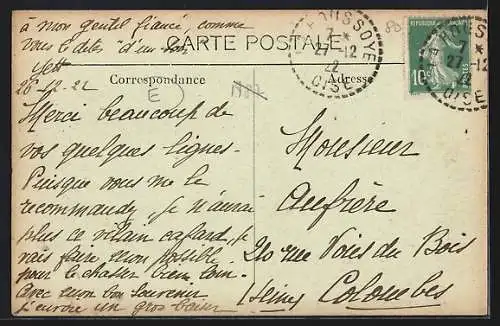 à mon gentil fiancé, comme
vous le dites d'un
Yett
26-12-22
CARTE POSTALE
Correspondance
Adresse
LABOUSSOYE
7 *
27-12
22
OISE
RÉPUBLIQUE FRANÇAISE
POSTES
10c
7 *
27-12
OISE
E
Merci beaucoup de
vos quelques lignes.
Puisque vous me le
recommandez, je n'aurai
plus ce vilain cafard, je
vais faire mon possible
pour le chasser bien loin.
Avec mon bon souvenir
j'envoie un gros baiser
Monsieur
Aufrère
20 rue Voies du Bois
Colombes